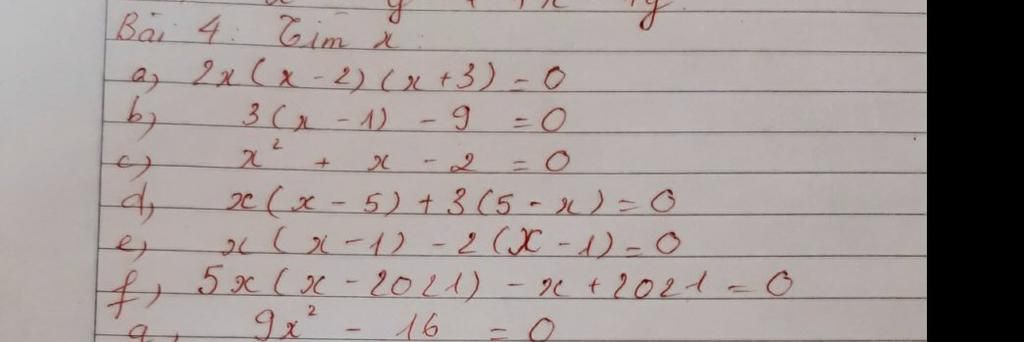 Bài 4: Tìm x
a, 2x(x-2)(x+3) = 0
b, 3(x-1) - 9 = 0
c, x² + x - 2 = 0
d, x(x-5) + 3(5-x) = 0
e, x(x-1) - 2(x-1) = 0
f, 5x(x-2021) - x + 2021 = 0
g, 9x² - 16 = 0